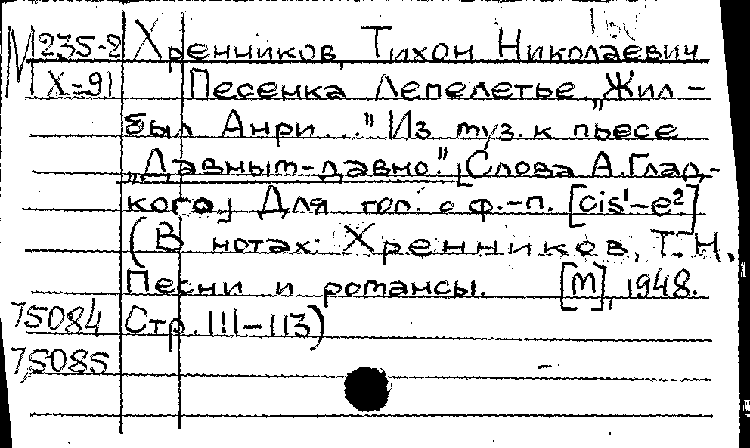 М 235-2 Хренников, Тихон Николаевич
Х-91 Песенка Лепелетье „Жил-
был Анри..." Из муз. к пьесе
„Давным-давно." [Слова А. Глад-
кого] Для гол. с ф.-п. [cis¹-e²]
(В нотах: Хренников, Т. Н.
Песни и романсы. [М], 1948.
75084 Стр. 111-113)
75085